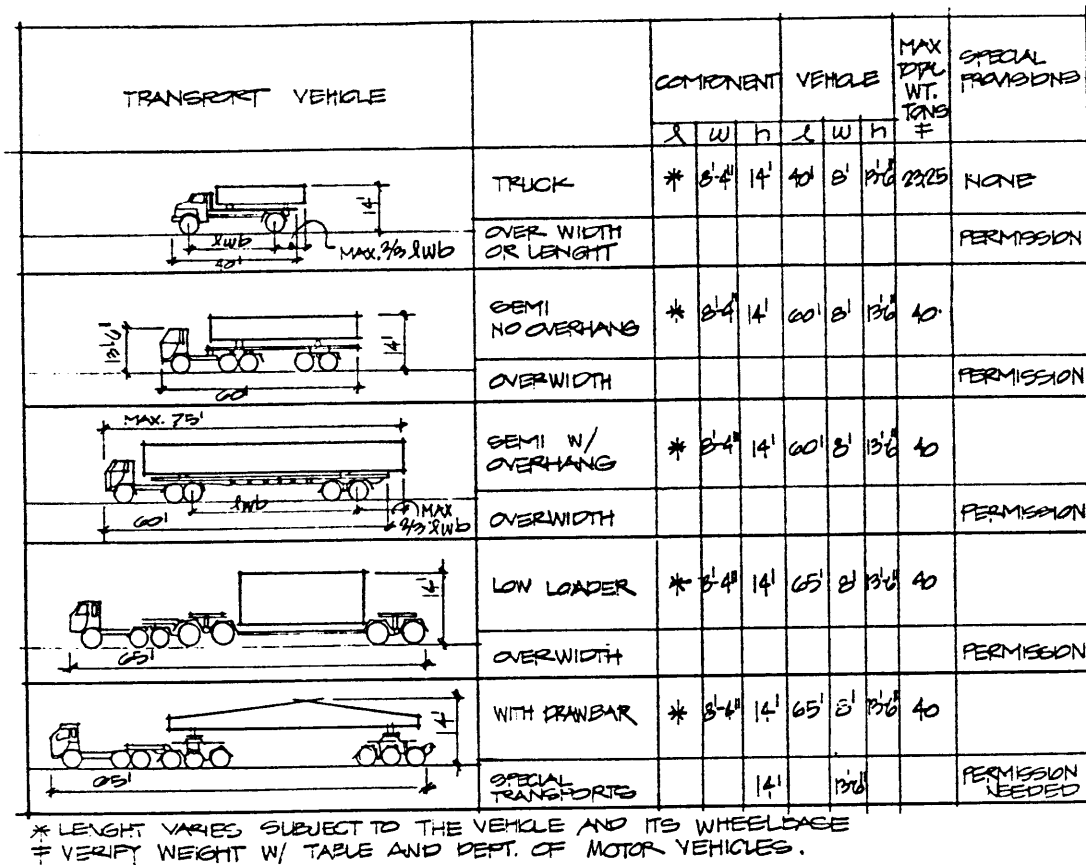 TRANSPORT VEHICLE
COMPONENT VEHICLE MAX TOTAL WT. TONS ‡ SPECIAL PROVISIONS
l w h l w h
TRUCK * 8'-4" 14' 40' 8' 13'6" 23.25 NONE
14'
lwb
40'
MAX. 2/3 lwb
OVER WIDTH
OR LENGHT PERMISSION
SEMI
NO OVERHANG * 8'-4" 14' 60' 8' 13'6" 40
13'6"
14'
60'
OVERWIDTH PERMISSION
MAX. 75'
SEMI W/
OVERHANG * 8'-4" 14' 60' 8' 13'6" 40
lwb
60'
MAX
2/3 lwb
OVERWIDTH PERMISSION
LOW LOADER * 8'-4" 14' 65' 8' 13'6" 40
14'
65'
OVERWIDTH PERMISSION
WITH DRAWBAR * 8'-4" 14' 65' 8' 13'6" 40
14'
65'
SPECIAL
TRANSPORTS 14' 13'6" PERMISSION
NEEDED
* LENGHT VARIES SUBJECT TO THE VEHICLE AND ITS WHEELBASE
‡ VERIFY WEIGHT W/ TABLE AND DEPT. OF MOTOR VEHICLES.